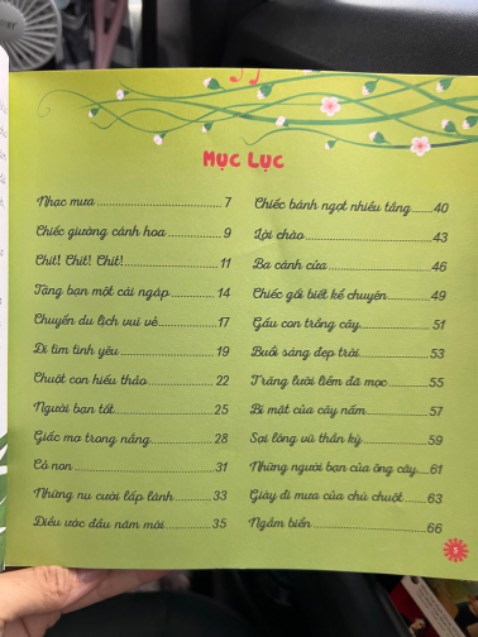 MỤC LỤC
Nhạc mưa 7
Chiếc giường cánh hoa 9
Chít! Chít! Chít! 11
Tặng bạn một cái ngáp 14
Chuyến du lịch vui vẻ 17
Đi tìm tình yêu 19
Chuột con hiếu thảo 22
Người bạn tốt 25
Giấc mơ trong nắng 28
Cỏ non 31
Những nụ cười lấp lánh 33
Điều ước đầu năm mới 35
Chiếc bánh ngọt nhiều tầng 40
Lời chào 43
Ba cánh cửa 46
Chiếc gối biết kể chuyện 49
Gấu con trồng cây 51
Buổi sáng đẹp trời 53
Trăng lưỡi liềm đã mọc 55
Bí mật của cây nấm 57
Sợi lông vũ thần kỳ 59
Những người bạn của ông cây 61
Giày đi mưa của chú chuột 63
Ngắm biển 66